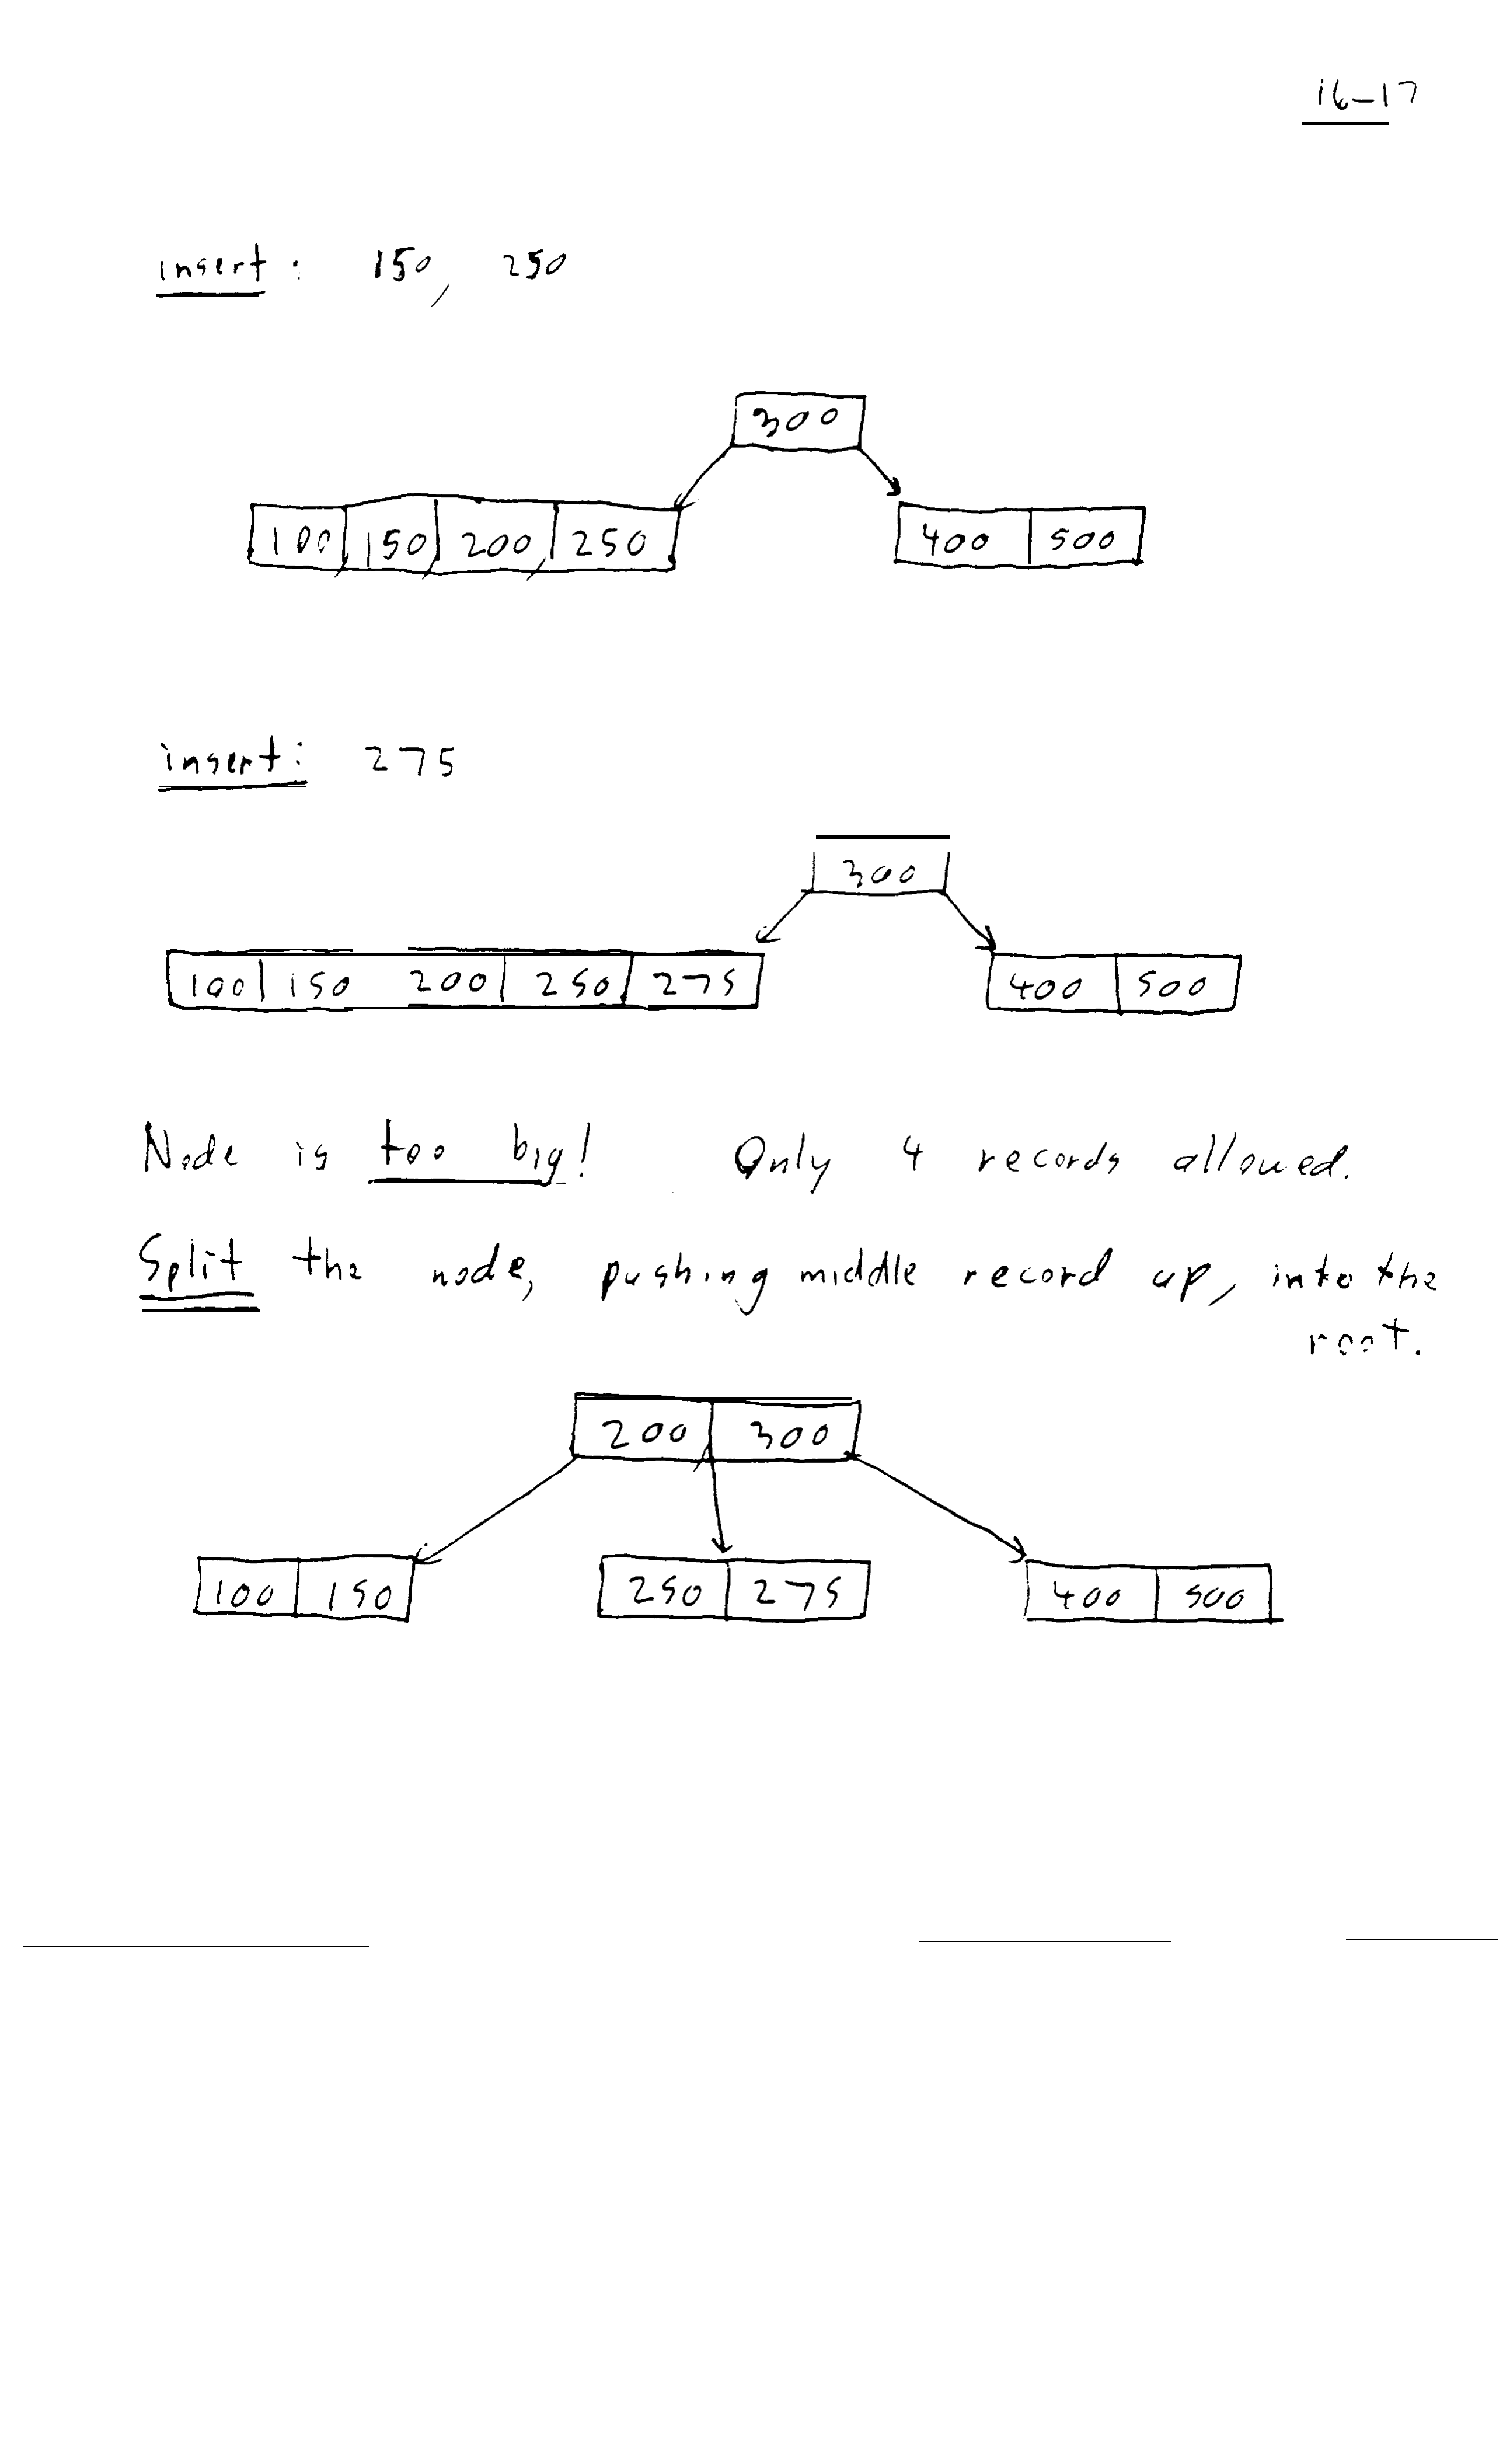 16-17
insert: 150, 250
300
100 150 200 250 400 500
insert: 275
300
100 150 200 250 275 400 500
Node is too big! Only 4 records allowed.
Split the node, pushing middle record up, into the
root.
200 300
100 150 250 275 400 500